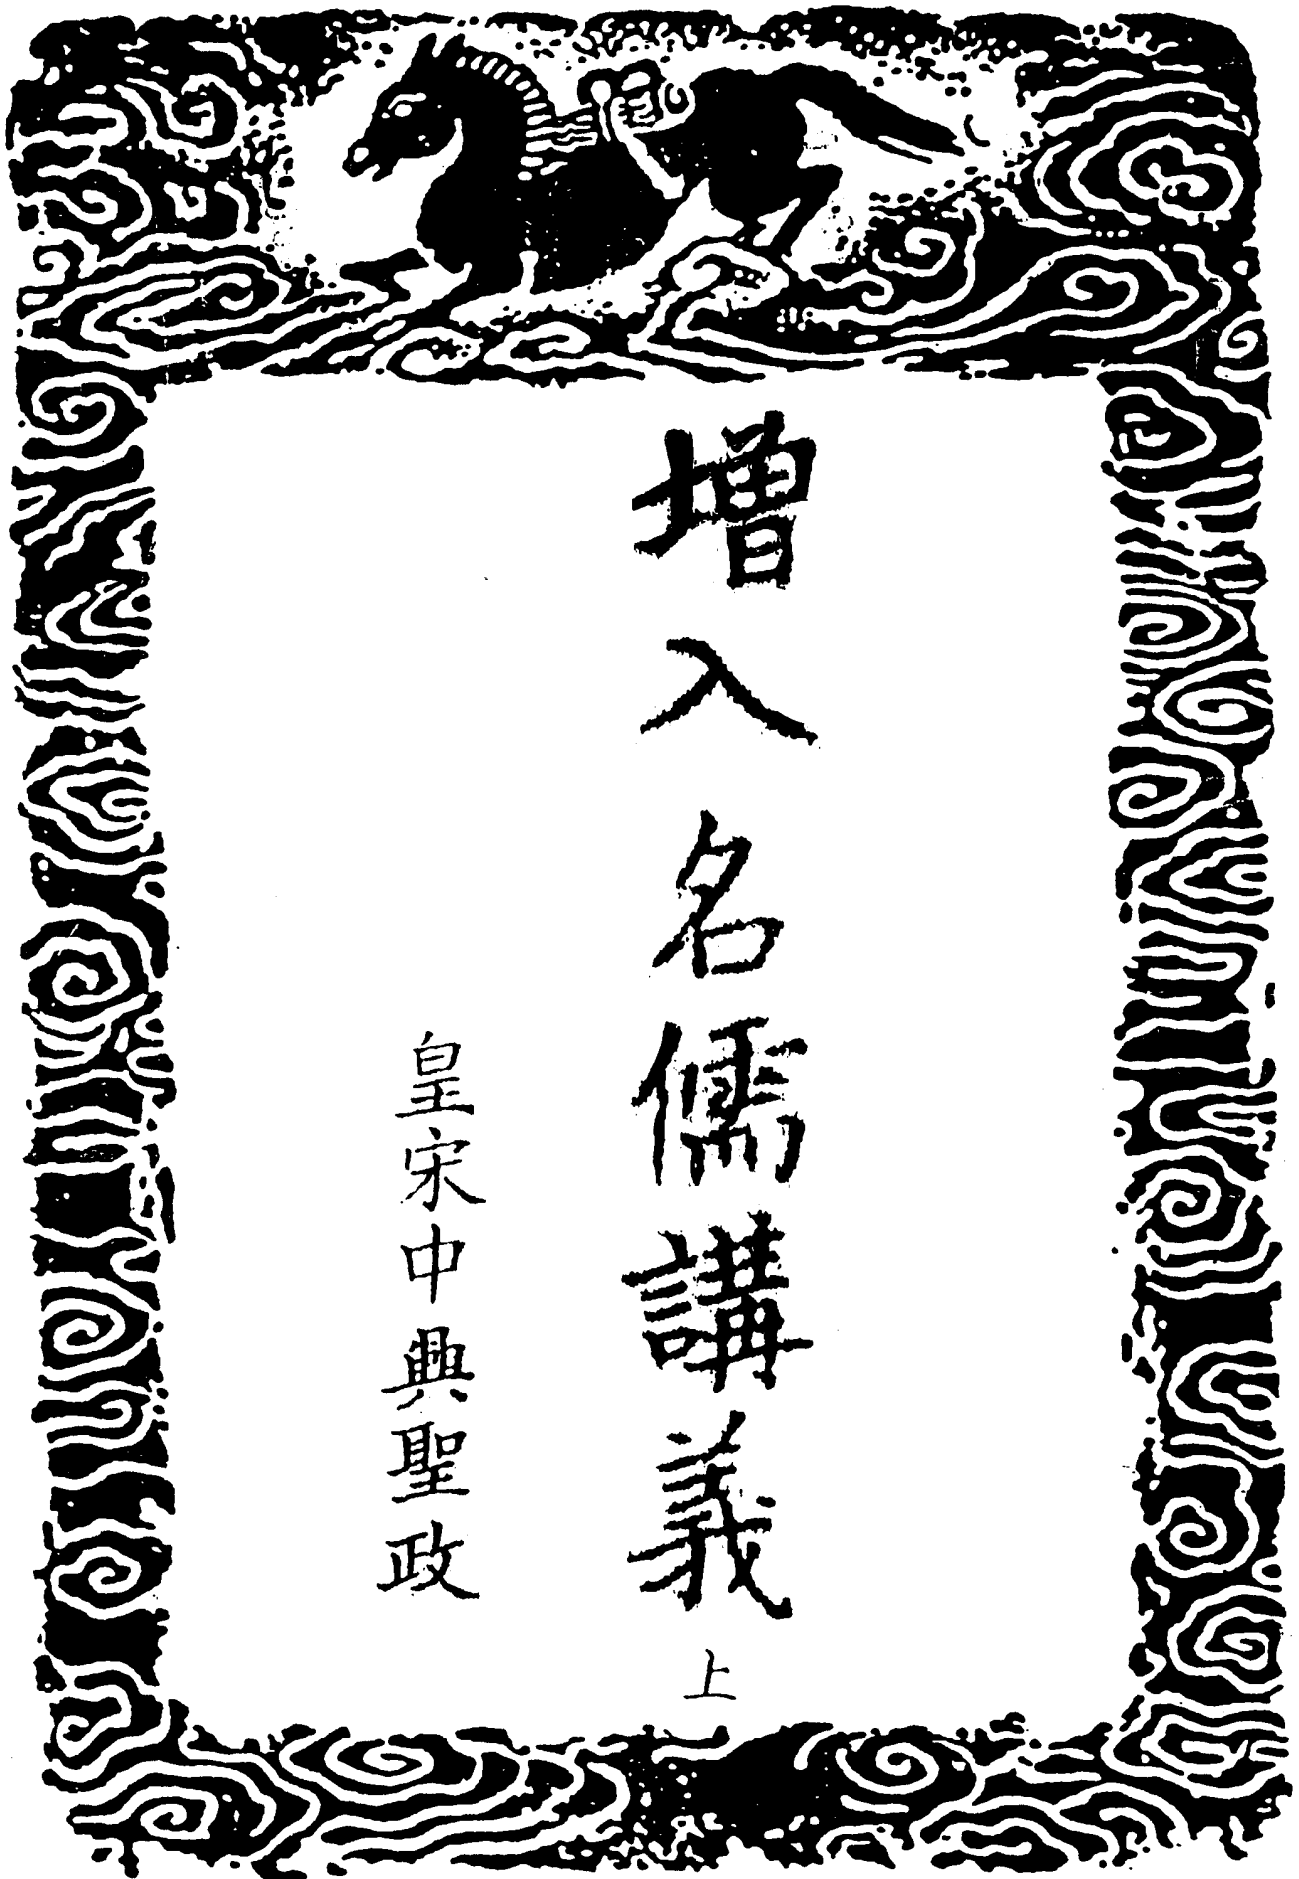 增入名儒講義上
皇宋中興聖政